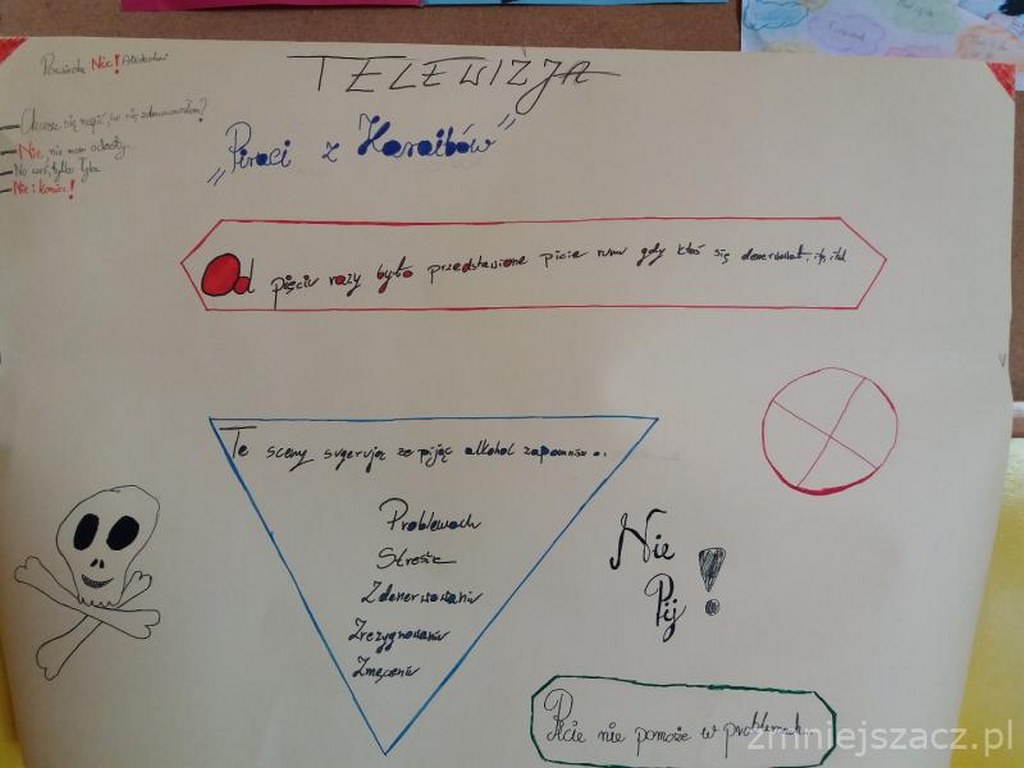 Powiedz Nie! Alkoholowi
- Chcesz się napić, bo się zdenerwowałem?
- Nie, nie mam ochoty.
- No weź, tylko łyka
- Nie i koniec!
TELEWIZJA
"Piraci z Karaibów"
Od pięciu razy było przedstawione picie rumu gdy ktoś się denerwował, itp, itd
Te sceny sugerują że pijąc alkohol zapomnisz o:
Problemach
Stresie
Zdenerwowaniu
Zrezygnowaniu
Zmęczeniu
Nie
Pij!
Picie nie pomoże w problemach.
zmniejszacz.pl